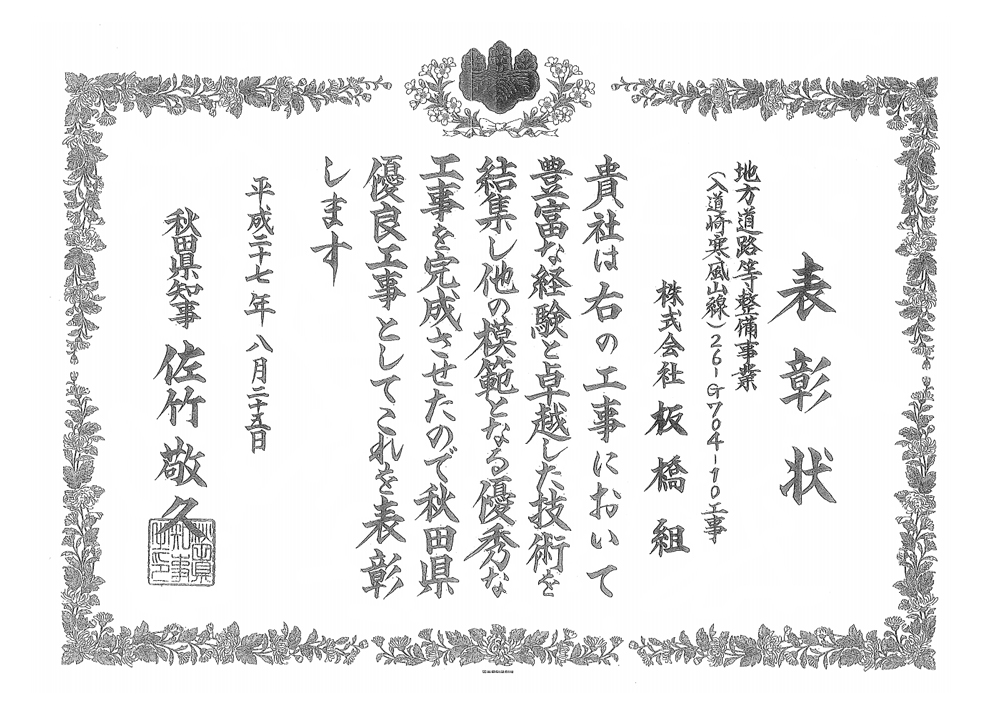 表彰状
地方道路等整備事業
(入道崎寒風山線)26-G704-10工事
株式会社 板橋組
貴社は右の工事において
豊富な経験と卓越した技術を
結集し他の模範となる優秀な
工事を完成させたので秋田県
優良工事としてこれを表彰
します
平成二十七年八月二十五日
秋田県知事 佐竹敬久